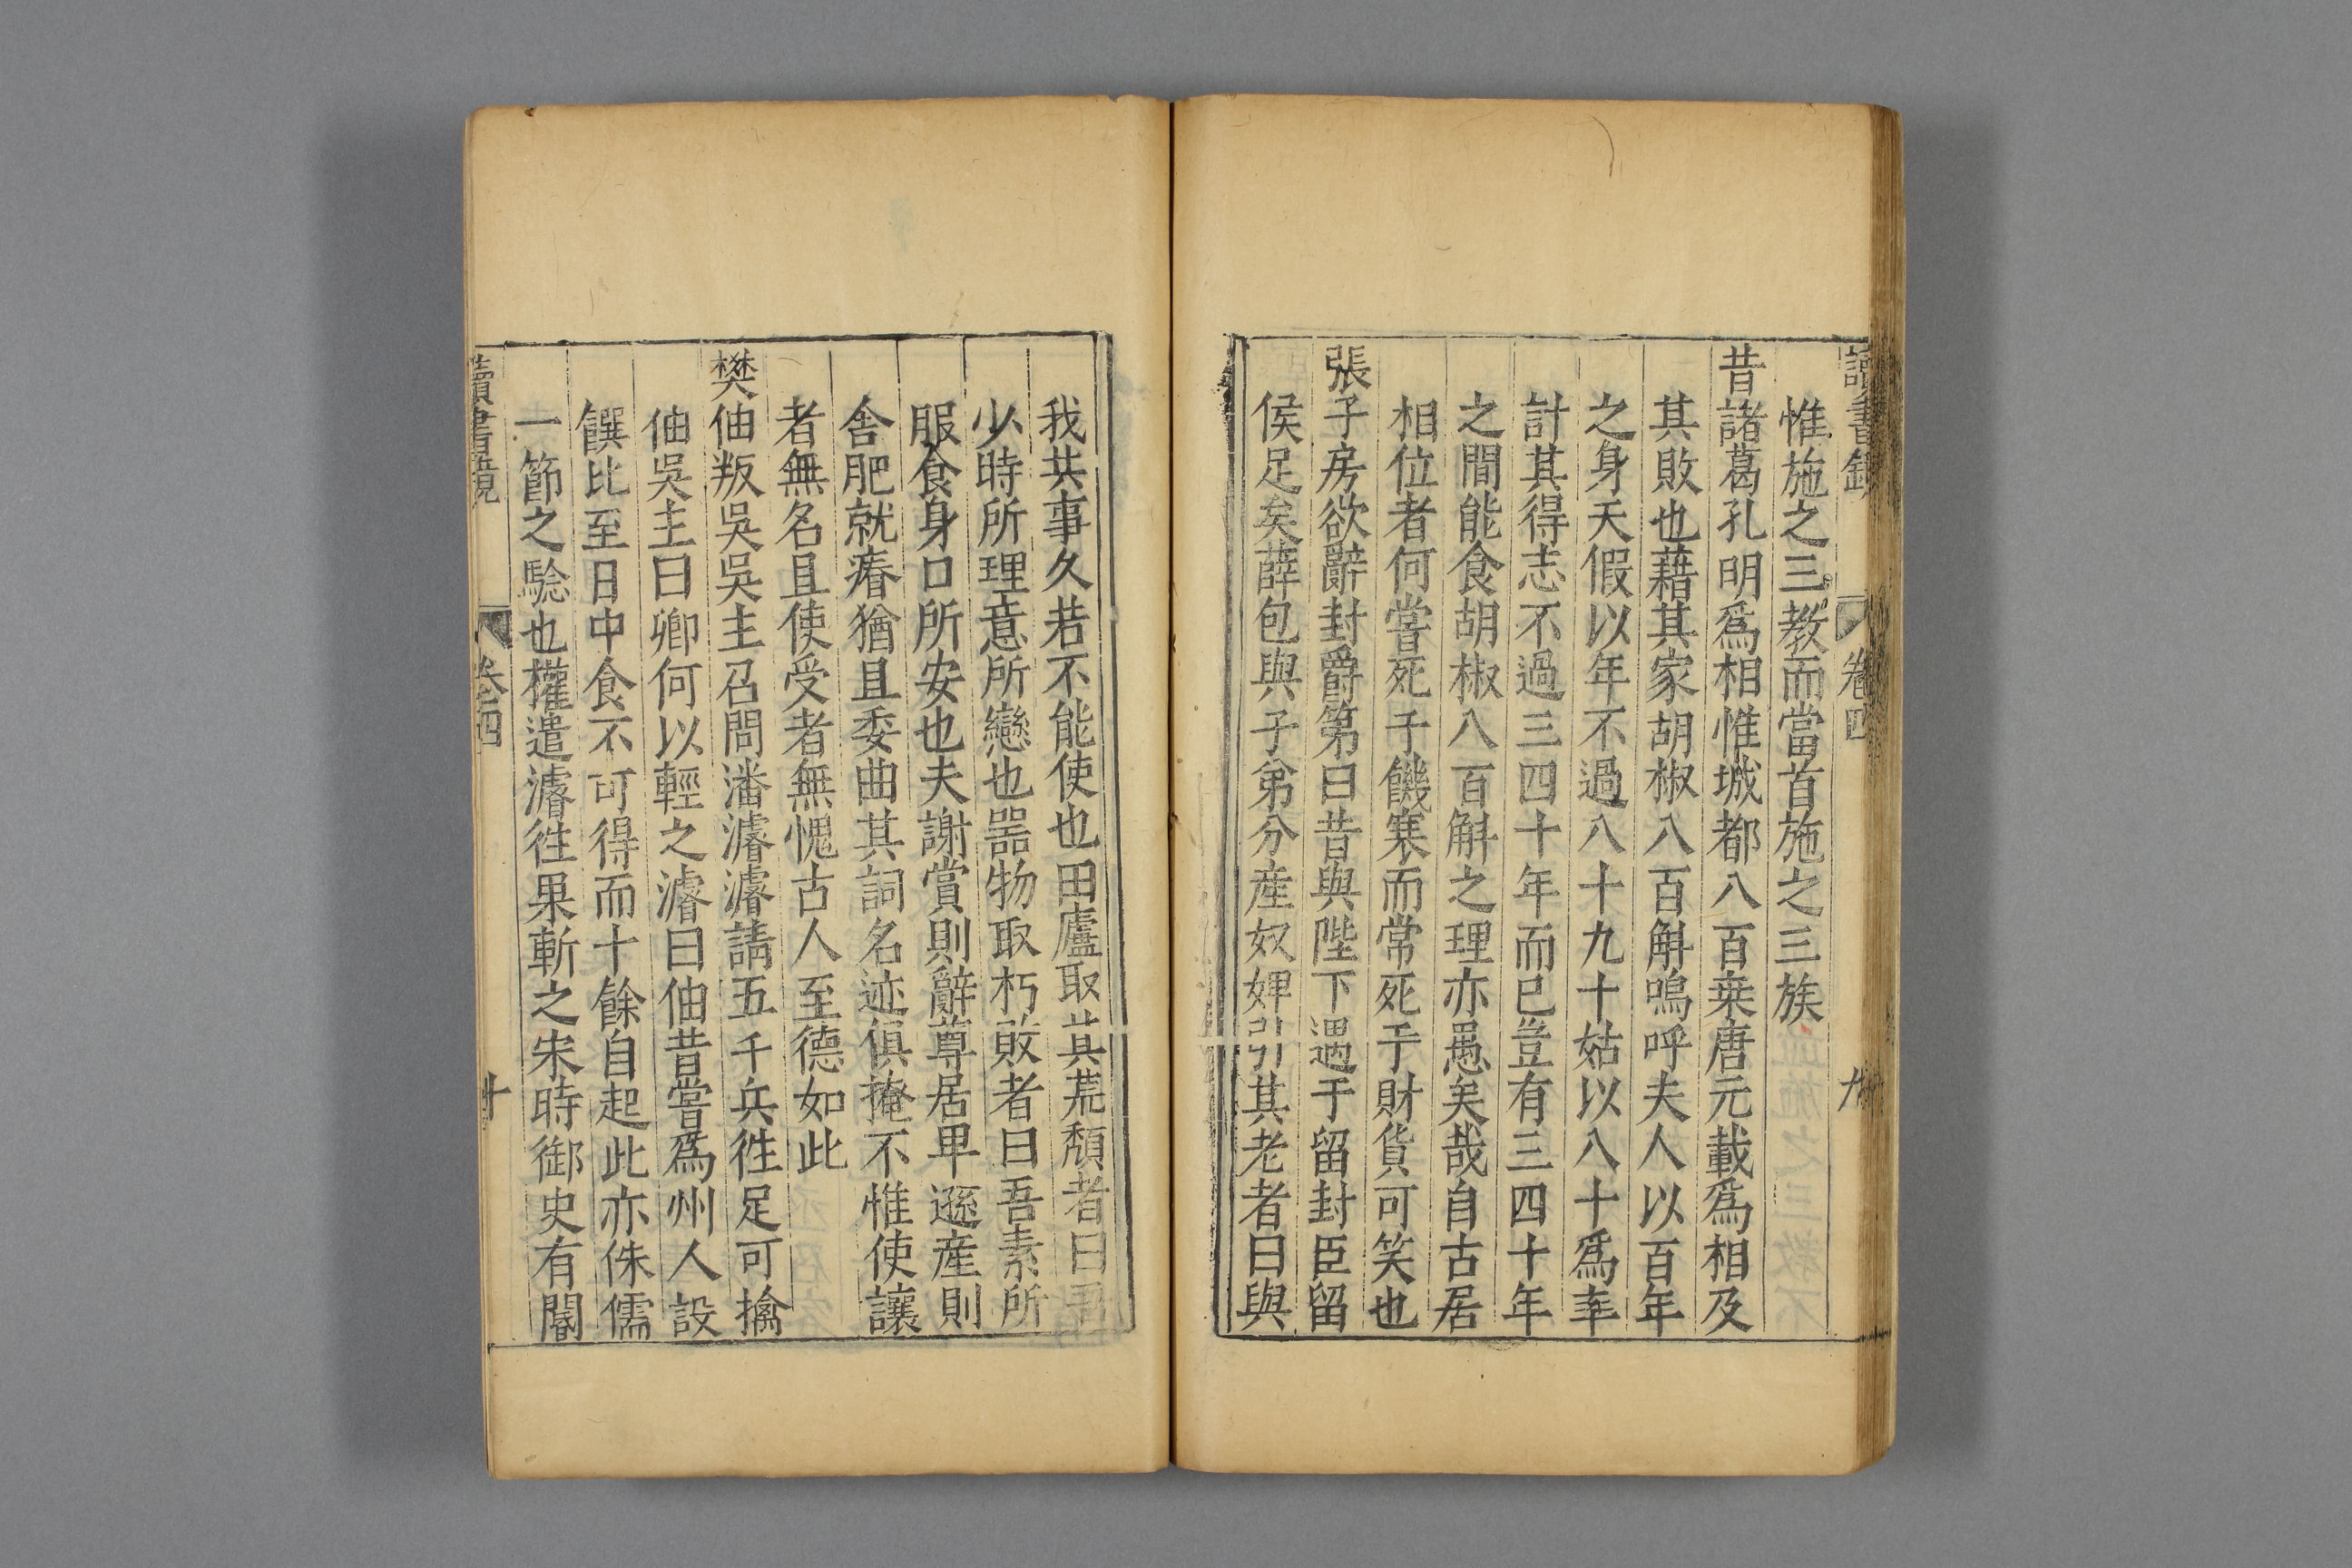 讀書鏡 卷四 九
惟施之三教而當首施之三族
昔諸葛孔明爲相惟城都八百桒唐元載爲相及
其敗也藉其家胡椒八百斛嗚呼夫人以百年
之身天假以年不過八十九十姑以八十爲率
計其得志不過三四十年而已豈有三四十年
之間能食胡椒八百斛之理亦愚矣哉自古居
相位者何嘗死于饑寒而常死于財貨可笑也
張子房欲辭封爵第曰昔與陛下遇于留封臣留
侯足矣薛包與子弟分産奴婢引其老者曰與
我共事久若不能使也田廬取其荒頹者曰吾
少時所理意所戀也噐物取朽敗者曰吾素所
服食身口所安也夫謝賞則辭尊居卑遜産則
舍肥就瘠猶且委曲其詞名迹俱掩不惟使讓
者無名且使受者無愧古人至德如此
樊伷叛吳吳主召問潘濬濬請五千兵徃足可擒
伷吳主曰卿何以輕之濬曰伷昔嘗爲州人設
饌比至日中食不可得而十餘自起此亦侏儒
一節之騐也權遣濬徃果斬之宋時御史有閽
讀書鏡 卷四 十